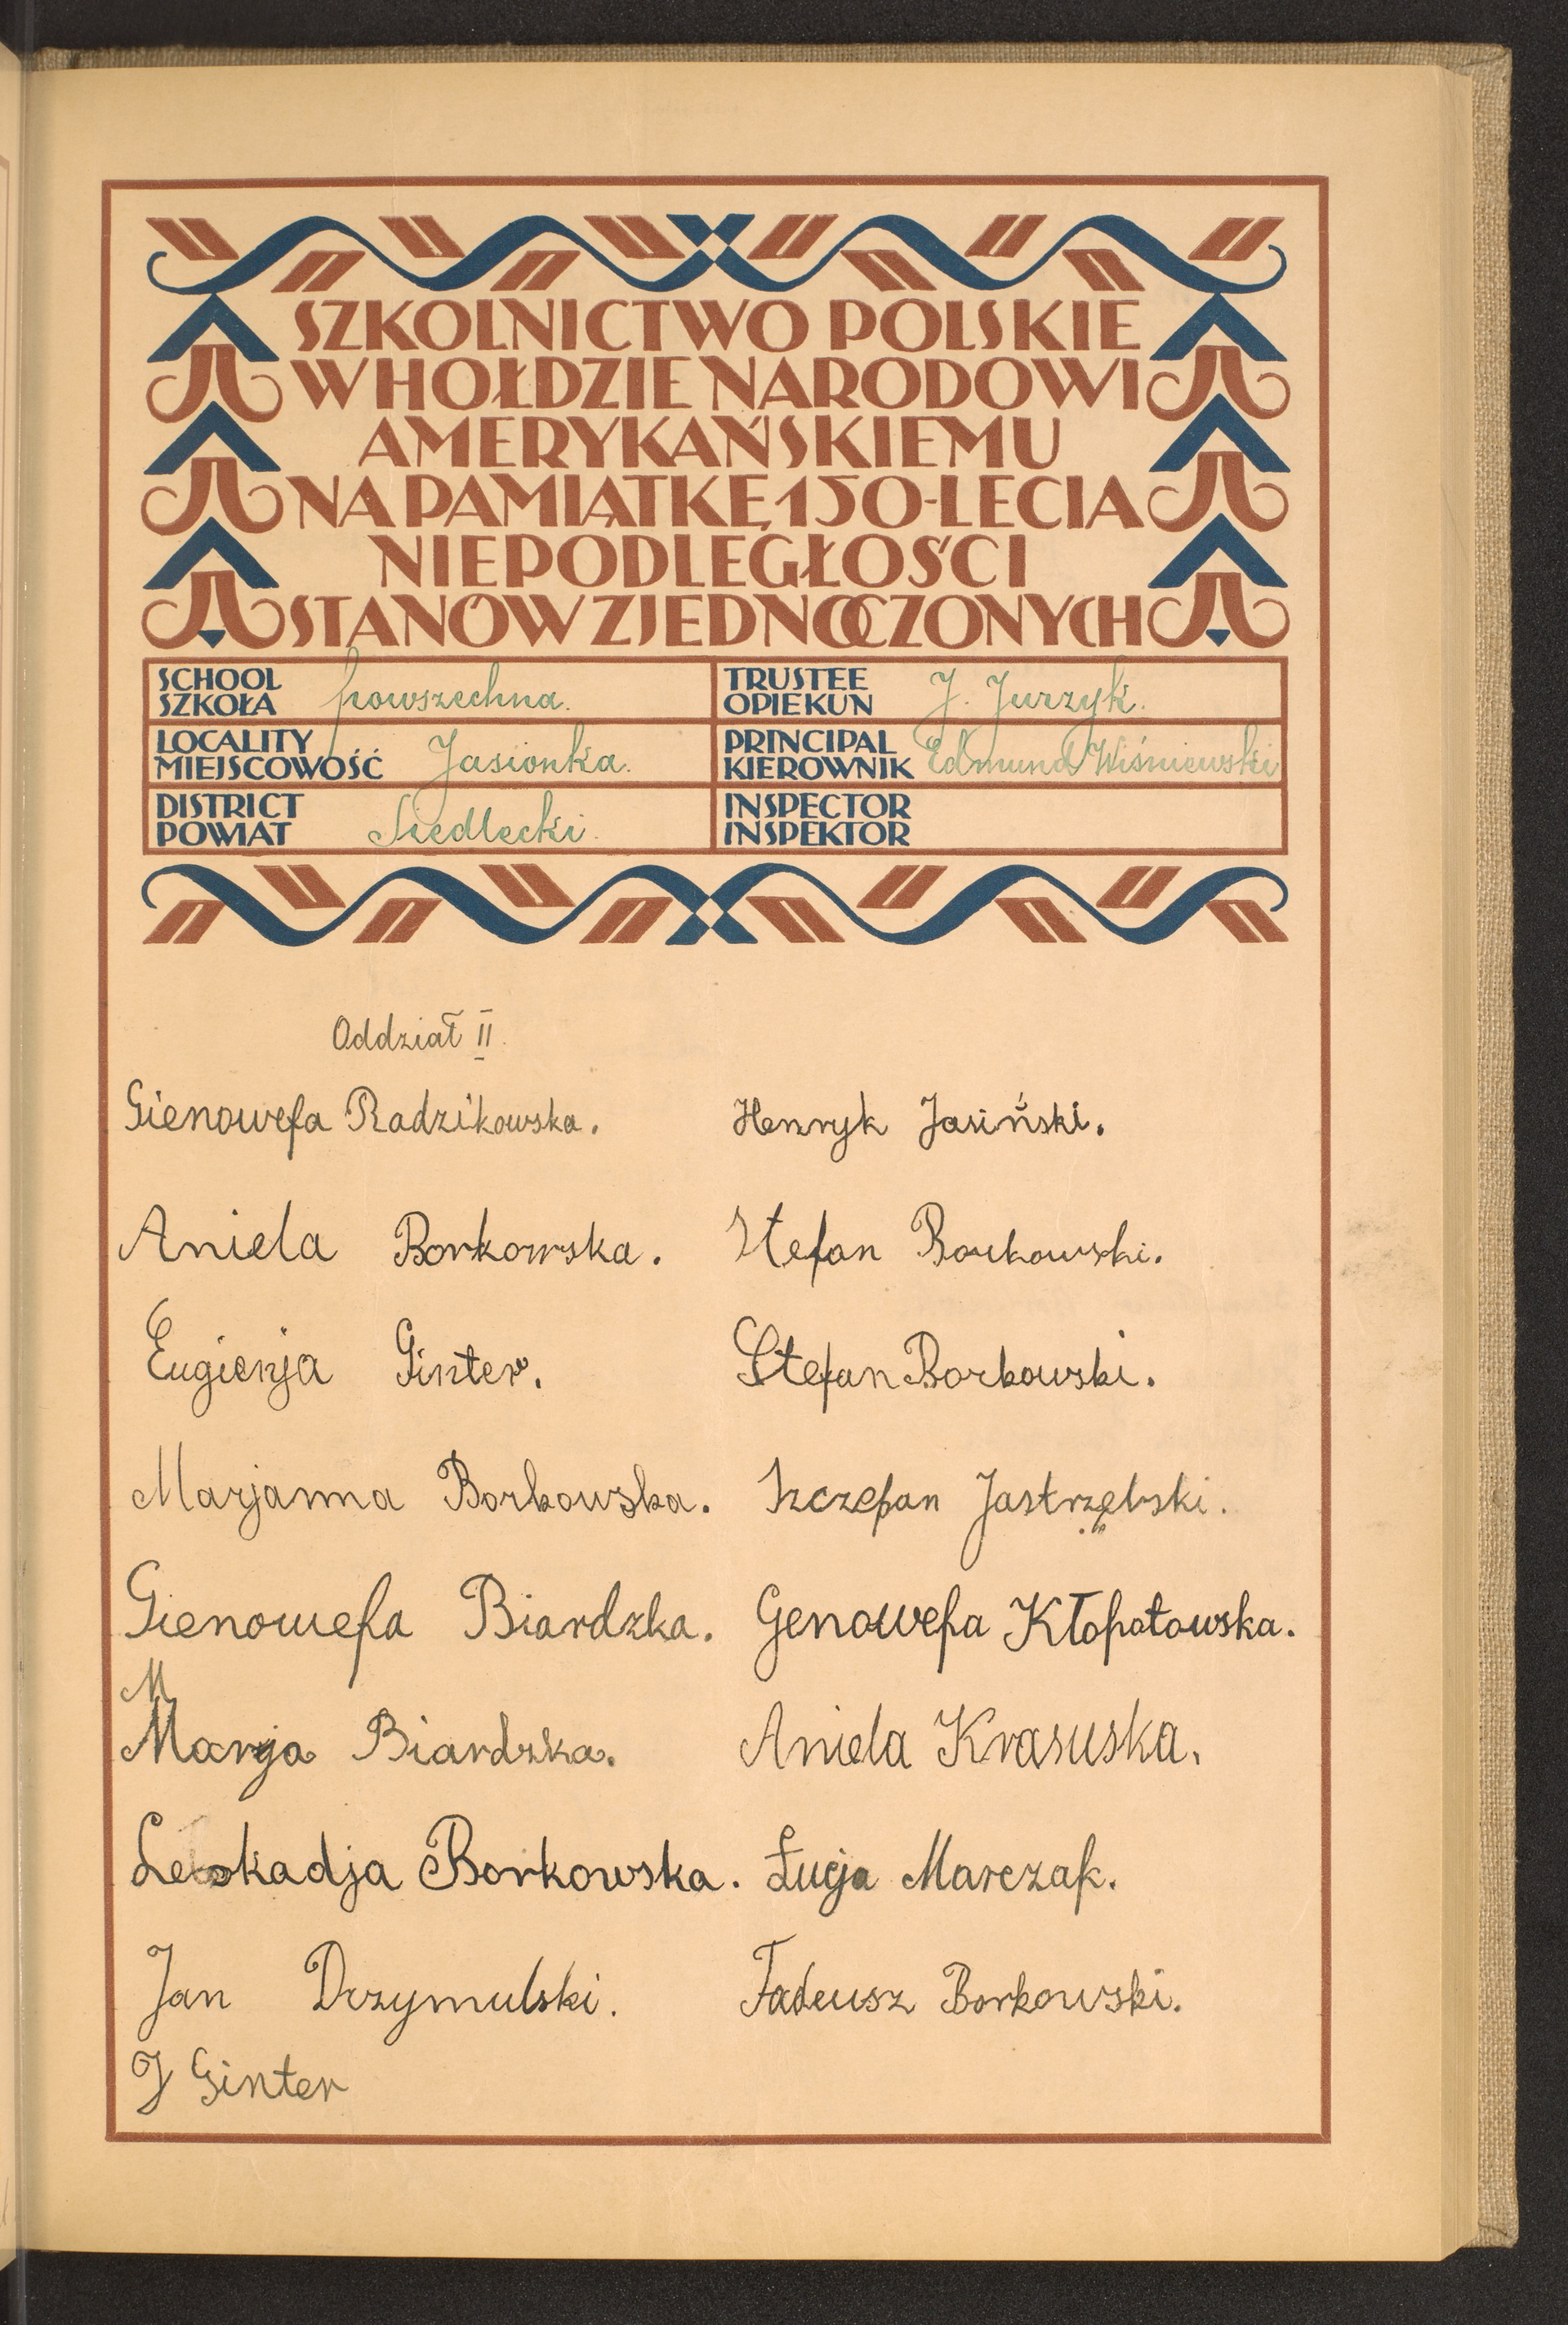 SZKOLNICTWO POLSKIE
W HOŁDZIE NARODOWI
AMERYKAŃSKIEMU
NA PAMIĄTKĘ 150-LECIA
NIEPODLEGŁOŚCI
STANÓW ZJEDNOCZONYCH
SCHOOL
SZKOŁA powszechna.
TRUSTEE
OPIEKUN J. Jurzyk.
LOCALITY
MIEJSCOWOŚĆ Jasionka.
PRINCIPAL
KIEROWNIK Edmund Wiśniewski
DISTRICT
POWIAT Siedlecki.
INSPECTOR
INSPEKTOR
Oddział II.
Gienowefa Radzikowska.
Aniela Borkowska.
Eugienja Ginter.
Marjanna Borkowska.
Gienowefa Biardzka.
M
Marja Biardzka.
Leokadja Borkowska.
Jan Drzymulski.
J Ginter
Henryk Jasiński.
Stefan Borkowski.
Stefan Borkowski.
Szczepan Jastrzębski.
Genowefa Kłopotowska.
Aniela Krasuska.
Łucja Marczak.
Tadeusz Borkowski.